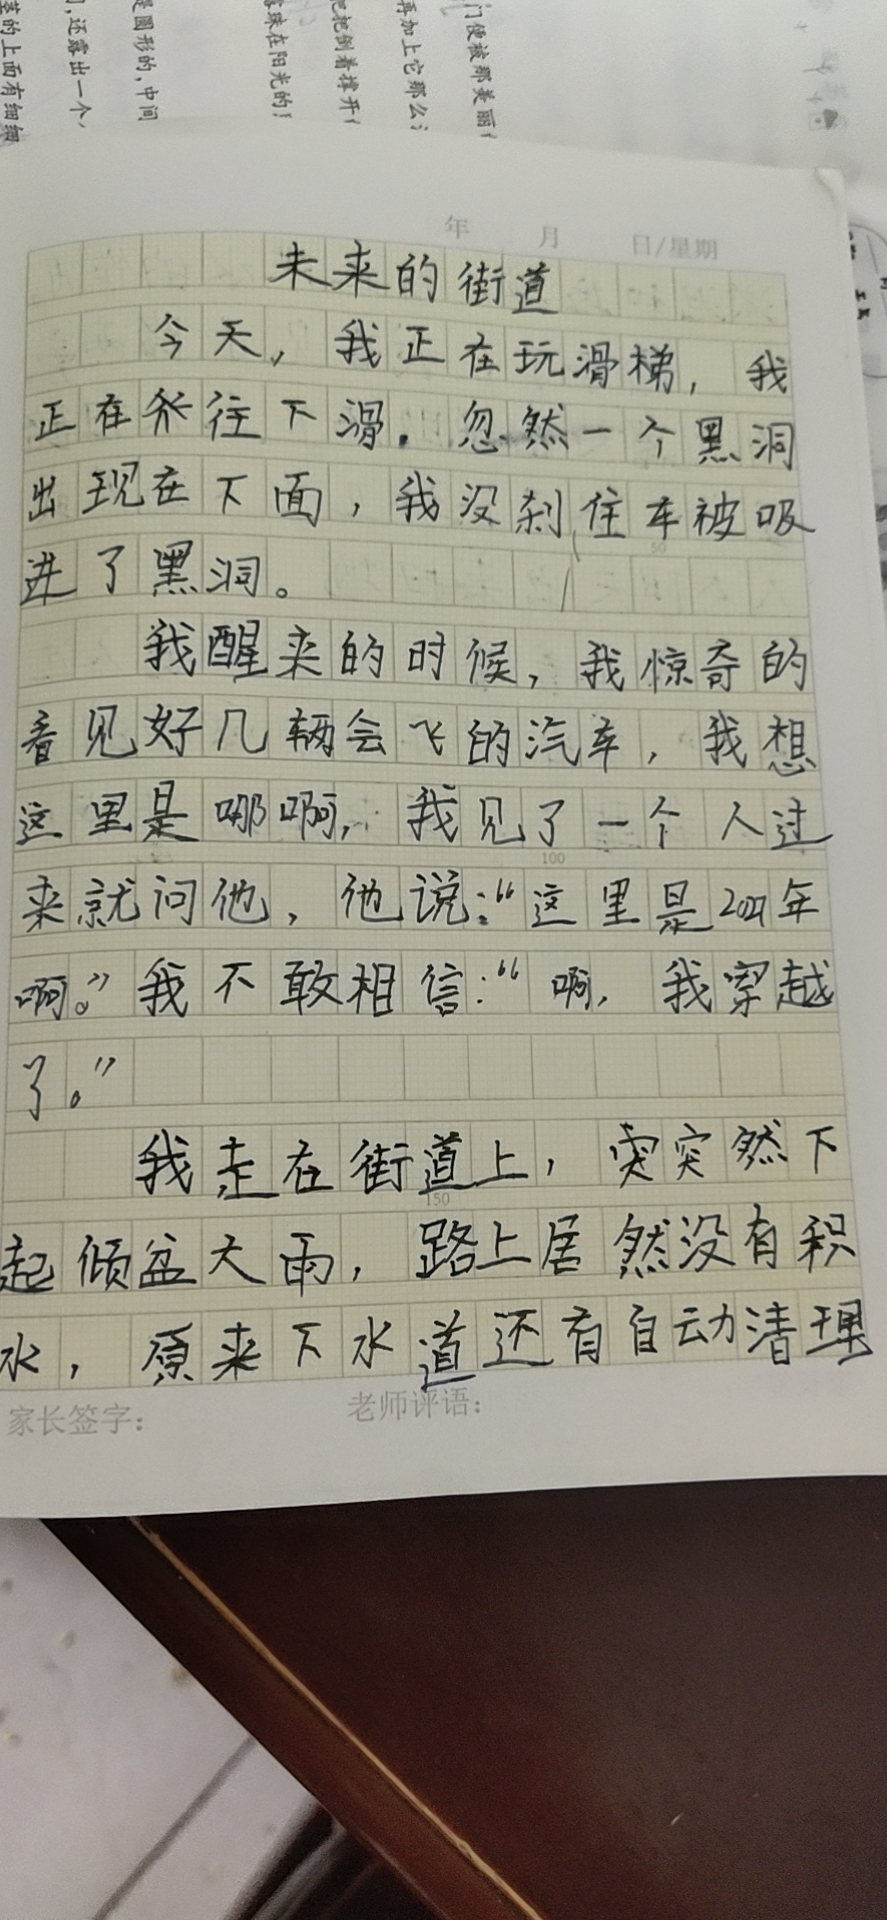 门便被那美丽
再加上它那么
把把倒着撑开
露珠在阳光的
是圆形的，中间
，还露出一个
茎的上面有细细
年 月 日/星期
未来的街道
今天，我正在玩滑梯，我
正在往下滑。忽然一个黑洞
出现在下面，我没刹住车被吸
进了黑洞。
50
我醒来的时候，我惊奇的
看见好几辆会飞的汽车，我想
这里是哪啊，我见了一个人过
100
来就问他，他说：“这里是年
啊。”我不敢相信：“啊，我穿越
了。”
我走在街道上，突突然下
150
起倾盆大雨，路上居然没有积
水，原来下水道还有自动清理
家长签字：
老师评语：